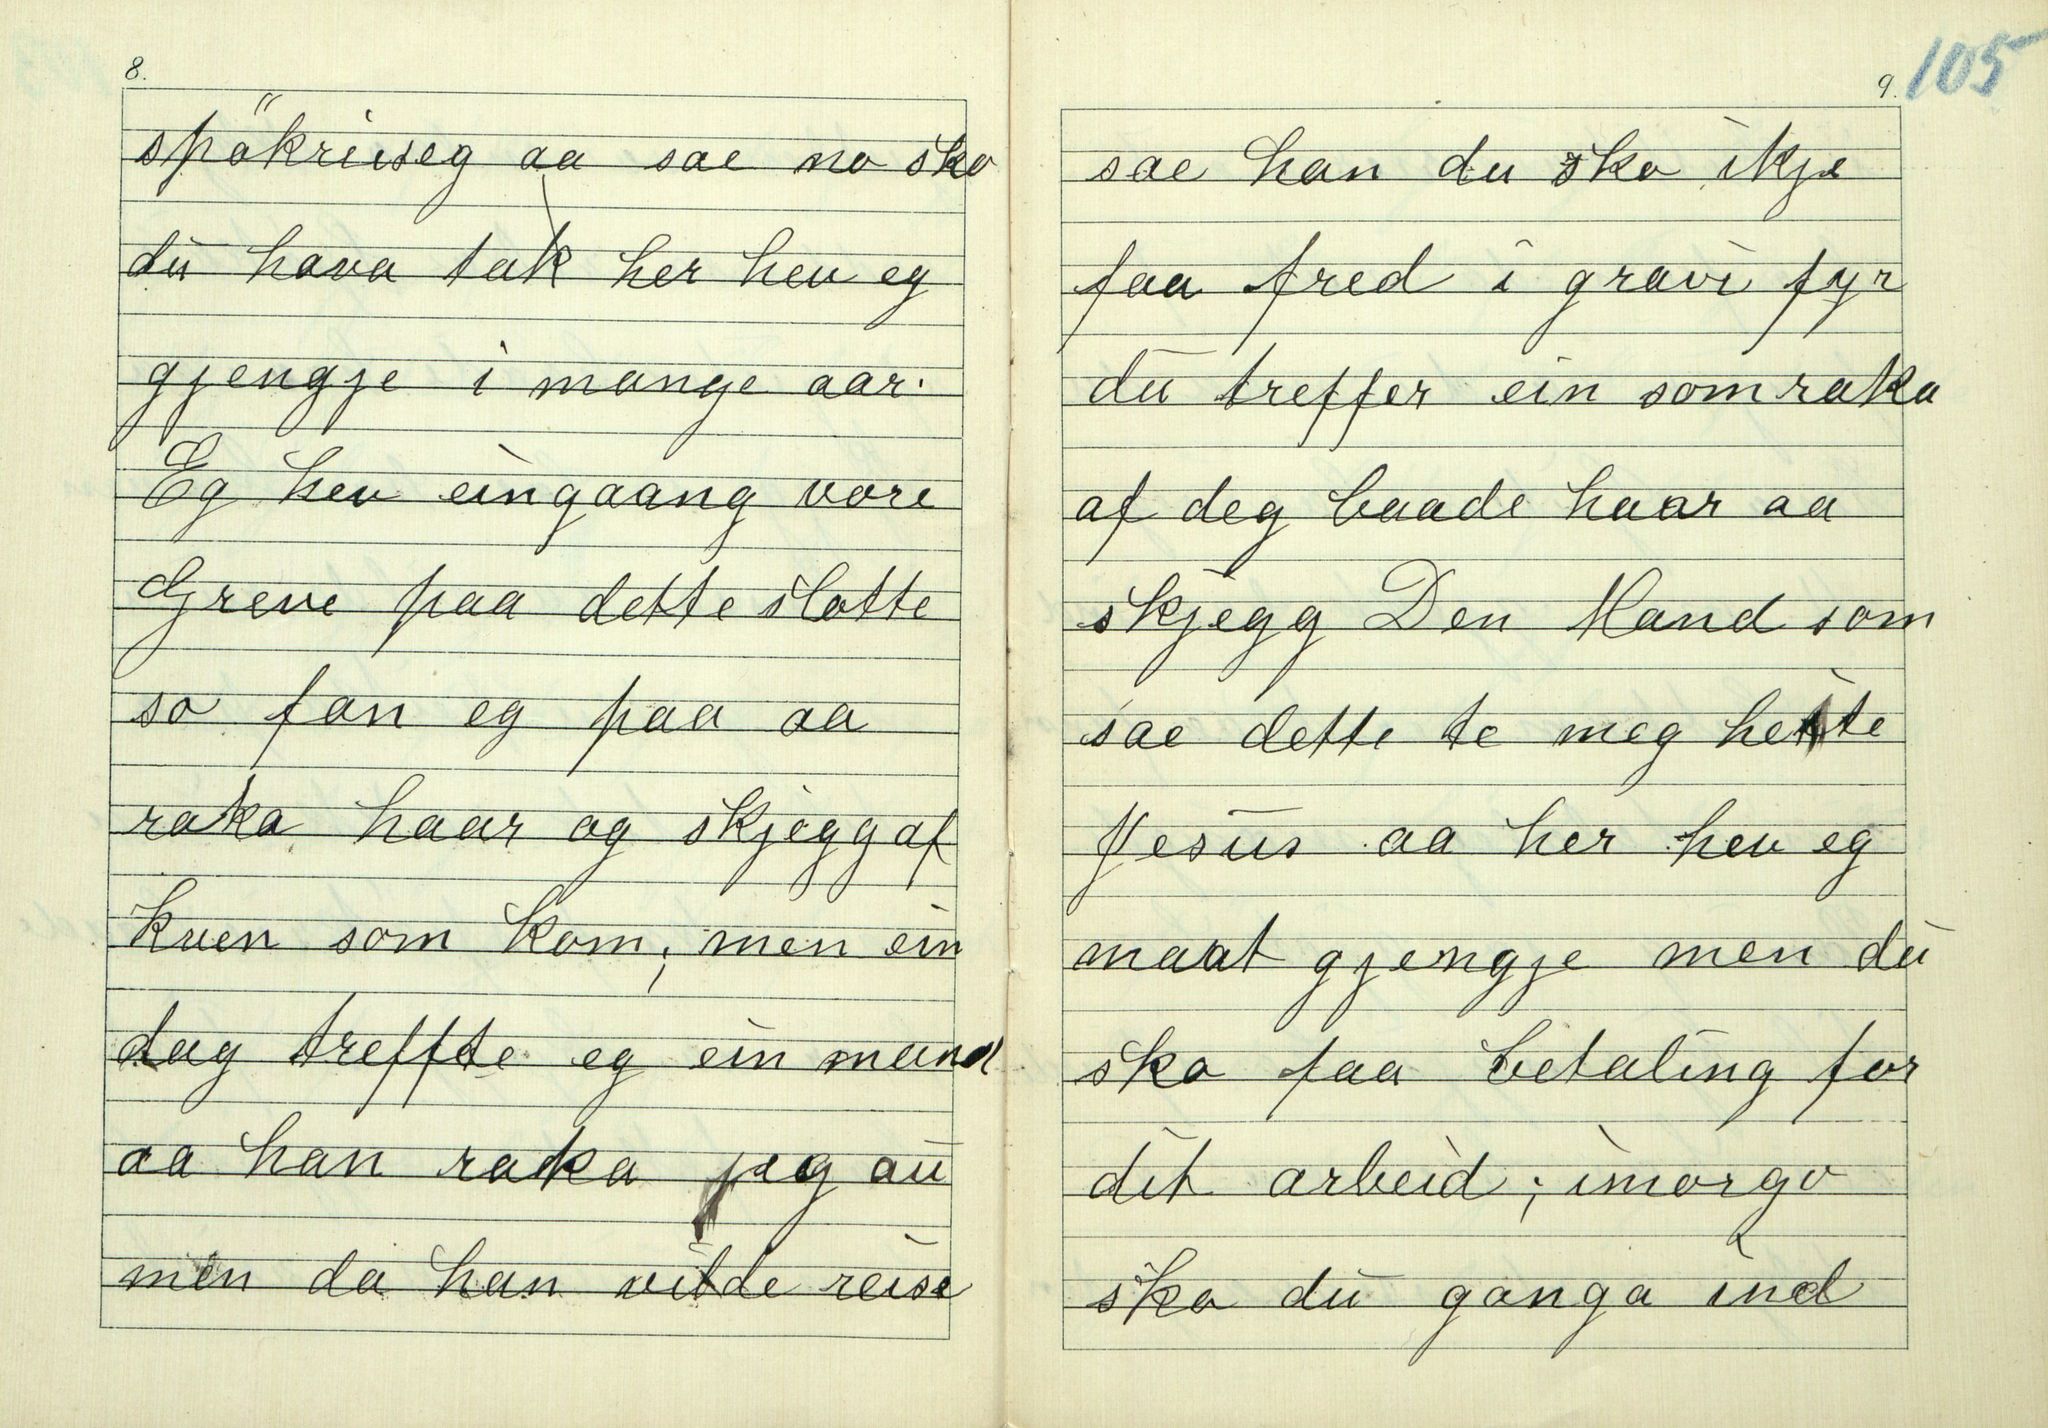 8.
spökriuseg aa sae no sko
du hava tak her heu eg
gjengje i mange aar.
Eg heu eingaang vore
Greve paa dette slotte
so fan eg paa aa
raka haar og skjegg af
kven som kom; men ein
dag treffte eg ein mand
aa han raka jeg au
men da han vilde reise
9. 105
sae han du sko ikje
faa fred i gravi fyr
du treffer ein som raka
af deg baade haar aa
skjegg Den Mand som
sae dette te meg heitte
Jesus aa her heu eg
maat gjengje men du
sko faa betaling for
dit arbeid; imorgo
ska du ganga ind